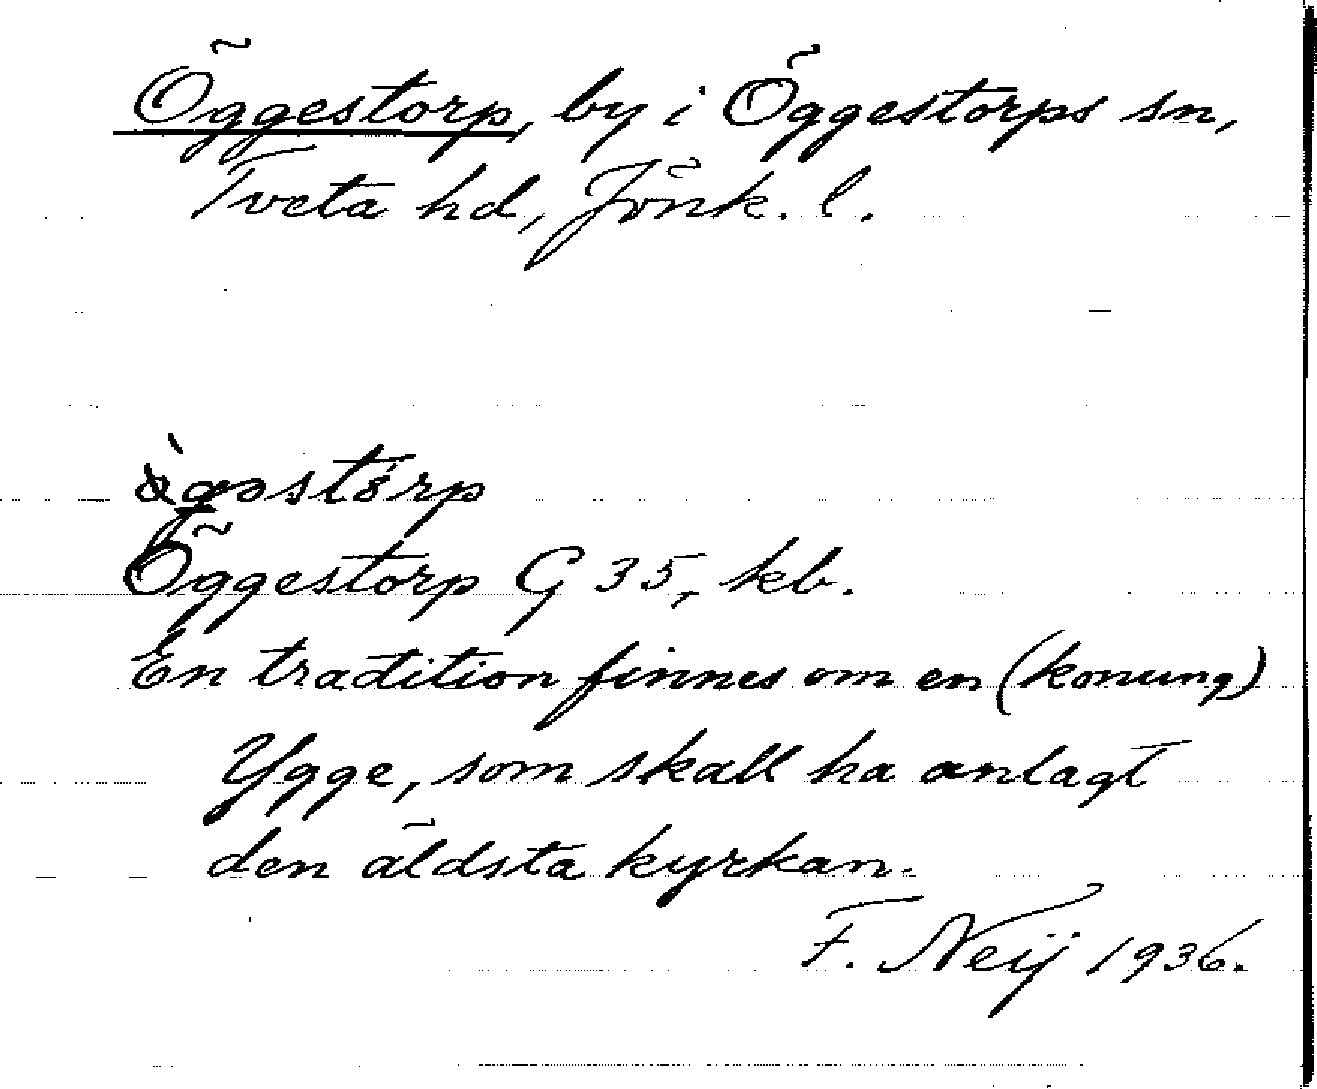 Öggestorp, by i Öggestorps sn,
Tveta hd, Jönk. l.
Öggestorp G 35, kb.
En tradition finnes om en (konung)
Ygge, som skall ha anlagt
den äldsta kyrkan.
F. Neij 1936.